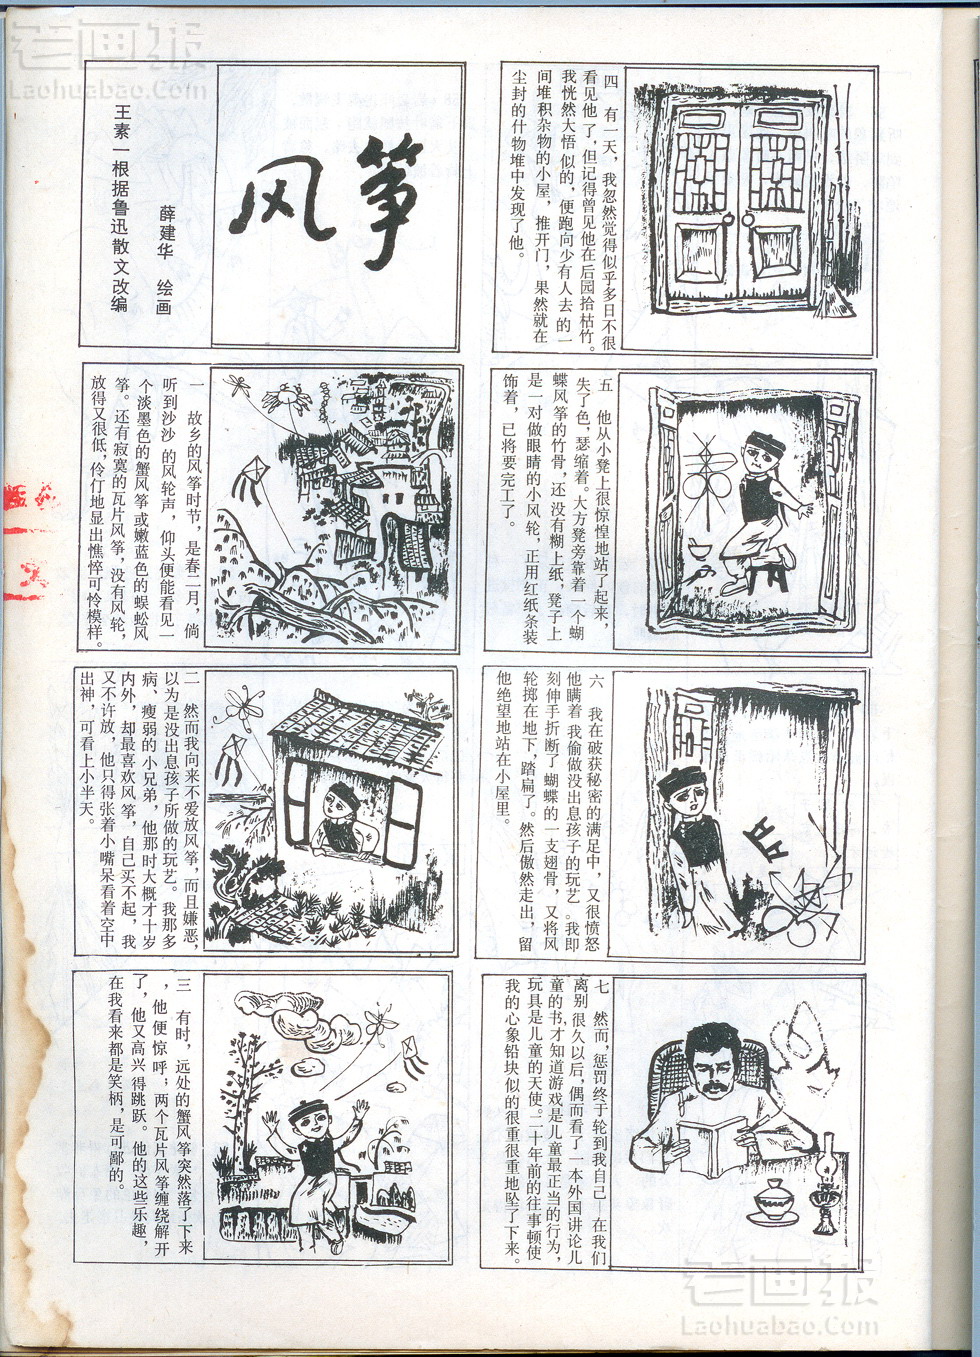 老画报
Laohuabao.Com
风筝
薛建华 绘画
王素一根据鲁迅散文改编
一 故乡的风筝时节，是春二月，倘
听到沙沙的风轮声，仰头便能看见一
个淡墨色的蟹风筝或嫩蓝色的蜈蚣风
筝。还有寂寞的瓦片风筝，没有风轮，
放得又很低，伶仃地显出憔悴可怜模样。
二 然而我向来不爱放风筝，而且嫌恶，
以为是没出息孩子所做的玩艺。我那多
病、瘦弱的小兄弟，他那时大概才十岁
内外，却最喜欢风筝，自己买不起，我
又不许放，他只得张着小嘴呆看着空中
出神，可看上小半天。
三 有时，远处的蟹风筝突然落了下来
，他便惊呼；两个瓦片风筝缠绕解开
了，他又高兴得跳跃。他的这些乐趣，
在我看来都是笑柄，是可鄙的。
四 有一天，我忽然觉得似乎多日不很
看见他了，但记得曾见他在后园拾枯竹。
我恍然大悟似的，便跑向少有人去的一
间堆积杂物的小屋，推开门，果然就在
尘封的什物堆中发现了他。
五 他从小凳上很惊惶地站了起来，
失了色，瑟缩着。大方凳旁靠着一个蝴
蝶风筝的竹骨，还没有糊上纸，凳子上
是一对做眼睛的小风轮，正用红纸条装
饰着，已将要完工了。
六 我在破获秘密的满足中，又很愤怒
他瞒着我偷做没出息孩子的玩艺。我即
刻伸手折断了蝴蝶的一支翅骨，又将风
轮掷在地下，踏扁了。然后傲然走出，留
他绝望地站在小屋里。
七 然而，惩罚终于轮到我自己—在我们
离别很久以后，偶而看了一本外国讲论儿
童的书，才知道游戏是儿童最正当的行为，
玩具是儿童的天使。二十年前的往事顿使
我的心象铅块似的很重很重地坠了下来。
老画报
Laohuabao.Com